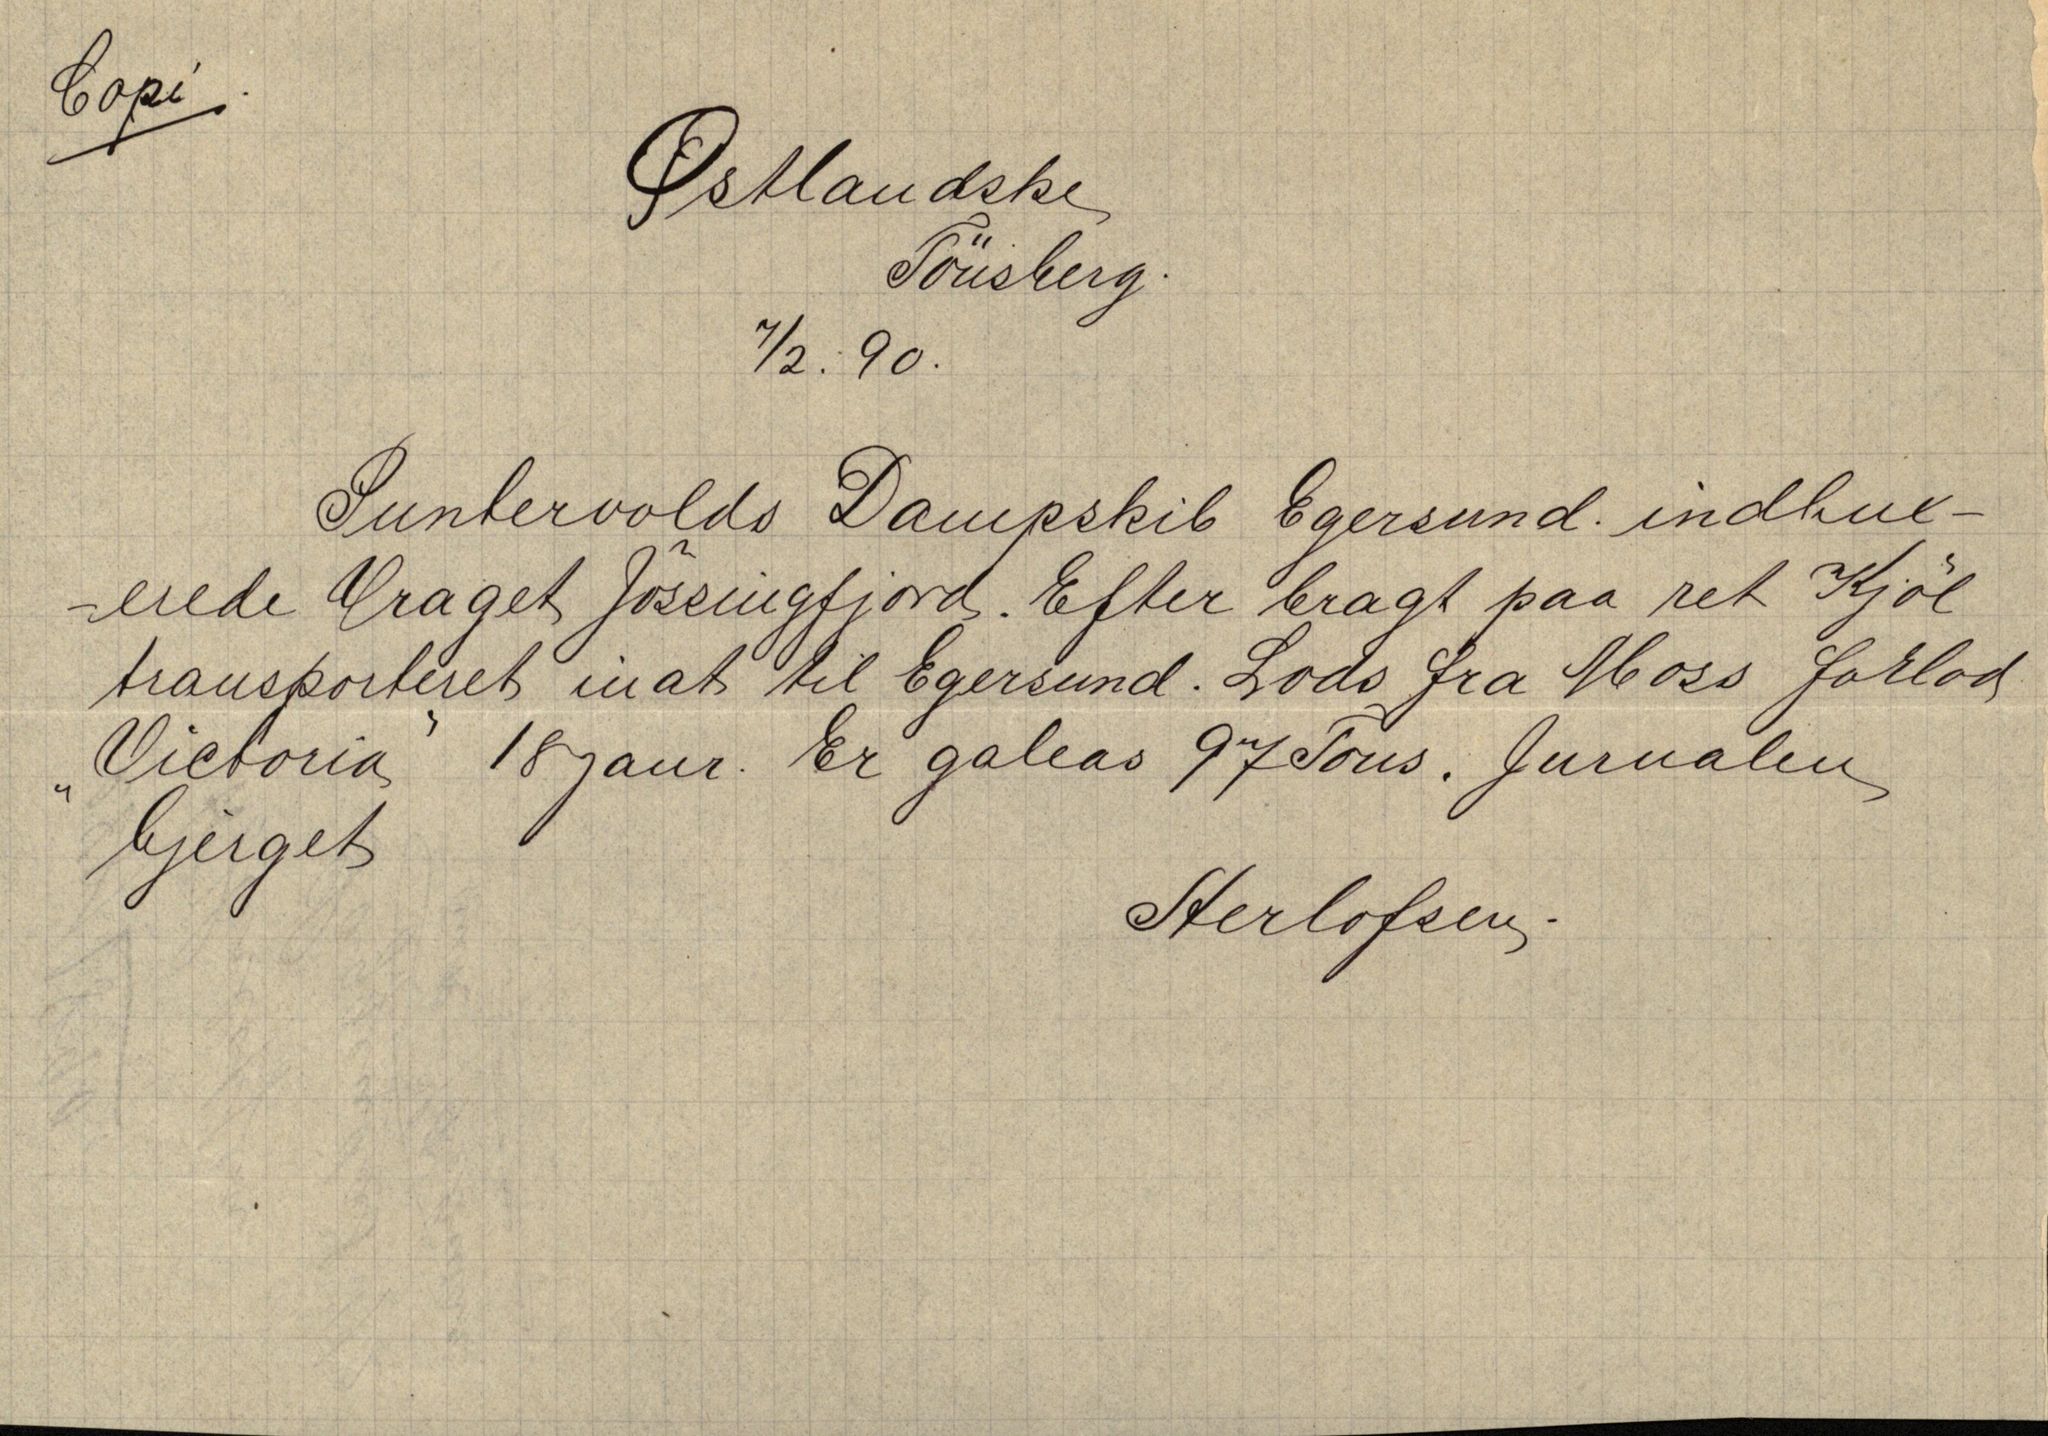 Copi.
Østlandske
Tönsberg.
7/2. 90.
Puntervolds Dampskib Egersund. indbux-
-erede Vraget Jössingfjord. Efter bragt paa ret Kjöl
transporteret inat til Egersund. Lods fra Moss forlod
"Victoria" 18 janr. Er galeas 97 Tons. Jurnalen
bjerget
Herlofsen.